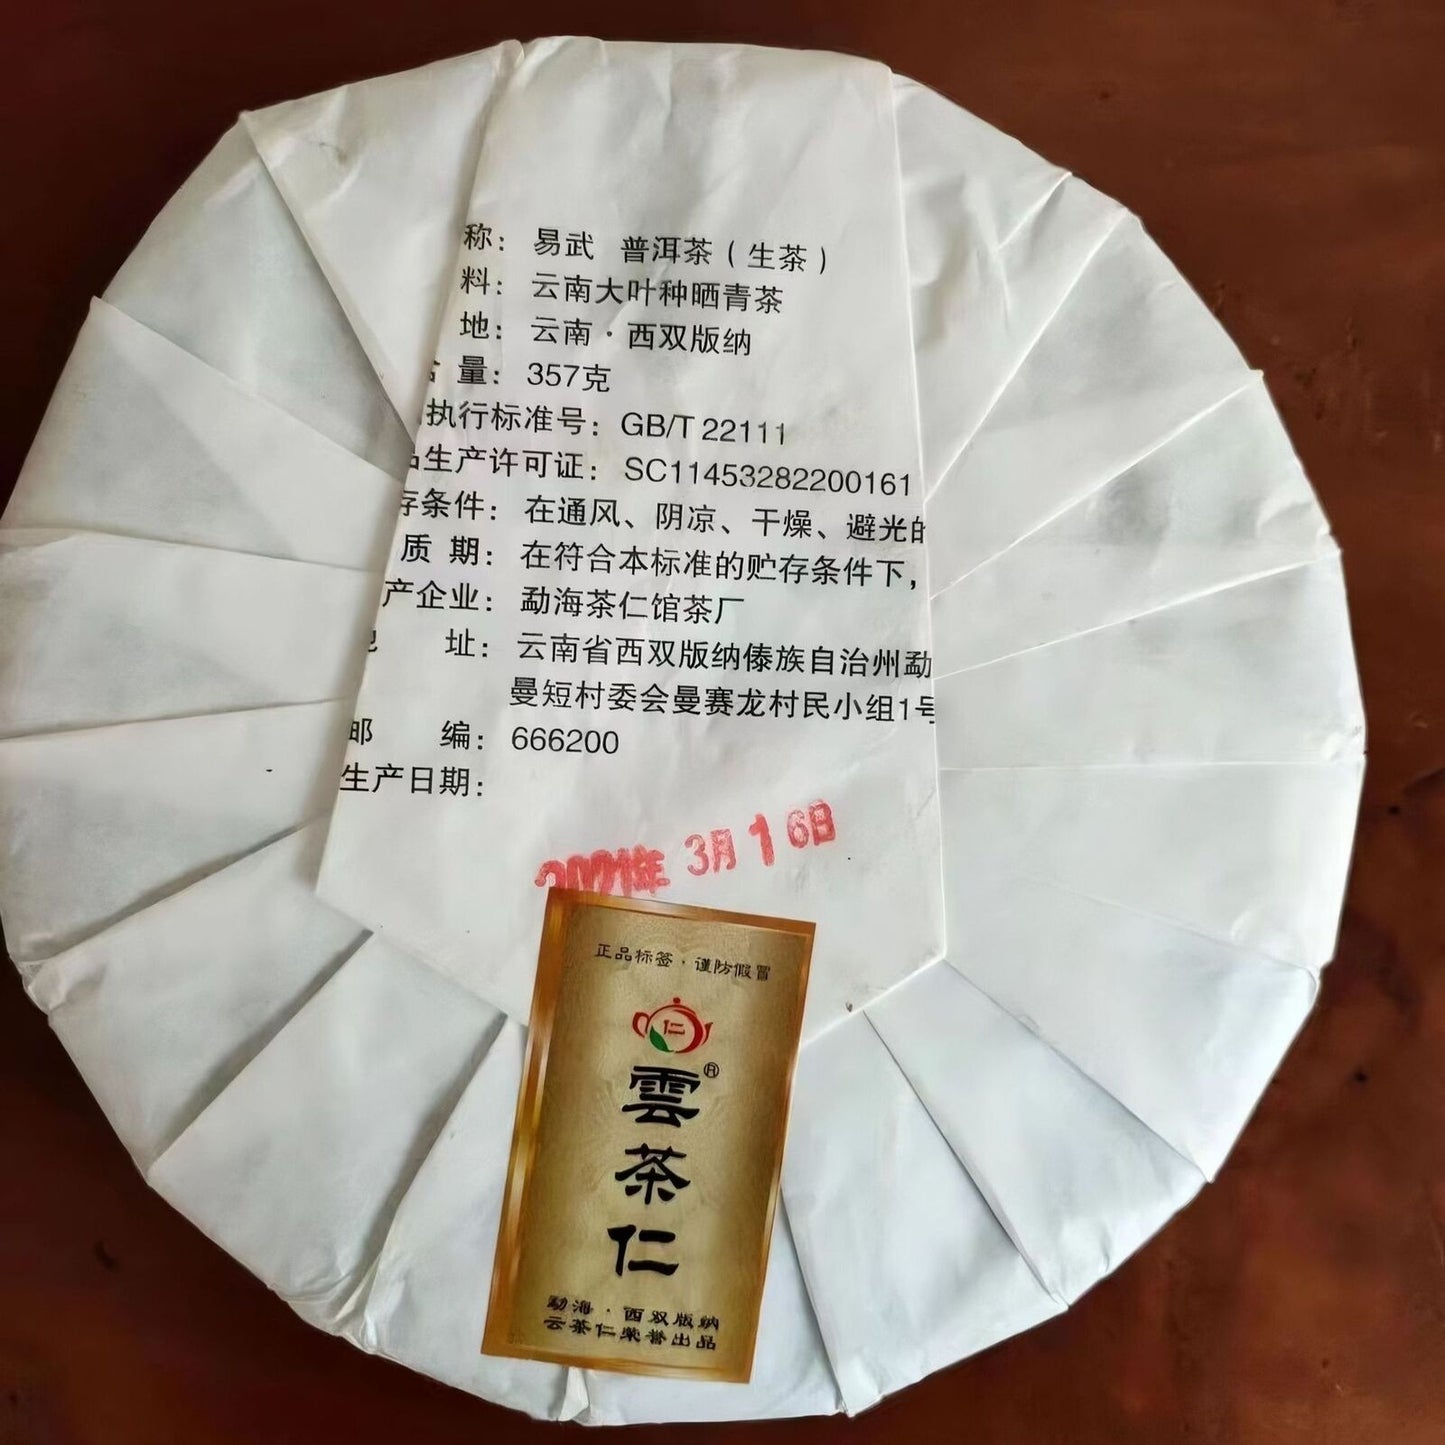 称：易武 普洱茶（生茶）
料：云南大叶种晒青茶
地：云南·西双版纳
量：357克
执行标准号：GB/T 22111
生产许可证：SC11453282200161
存条件：在通风、阴凉、干燥、避光的
质 期：在符合本标准的贮存条件下，
产企业：勐海茶仁馆茶厂
址：云南省西双版纳傣族自治州勐
曼短村委会曼赛龙村民小组1号
邮 编：666200
生产日期：
2021年 3月16日
正品标签·谨防假冒
仁
®
雲茶仁
勐海·西双版纳
云茶仁荣誉出品